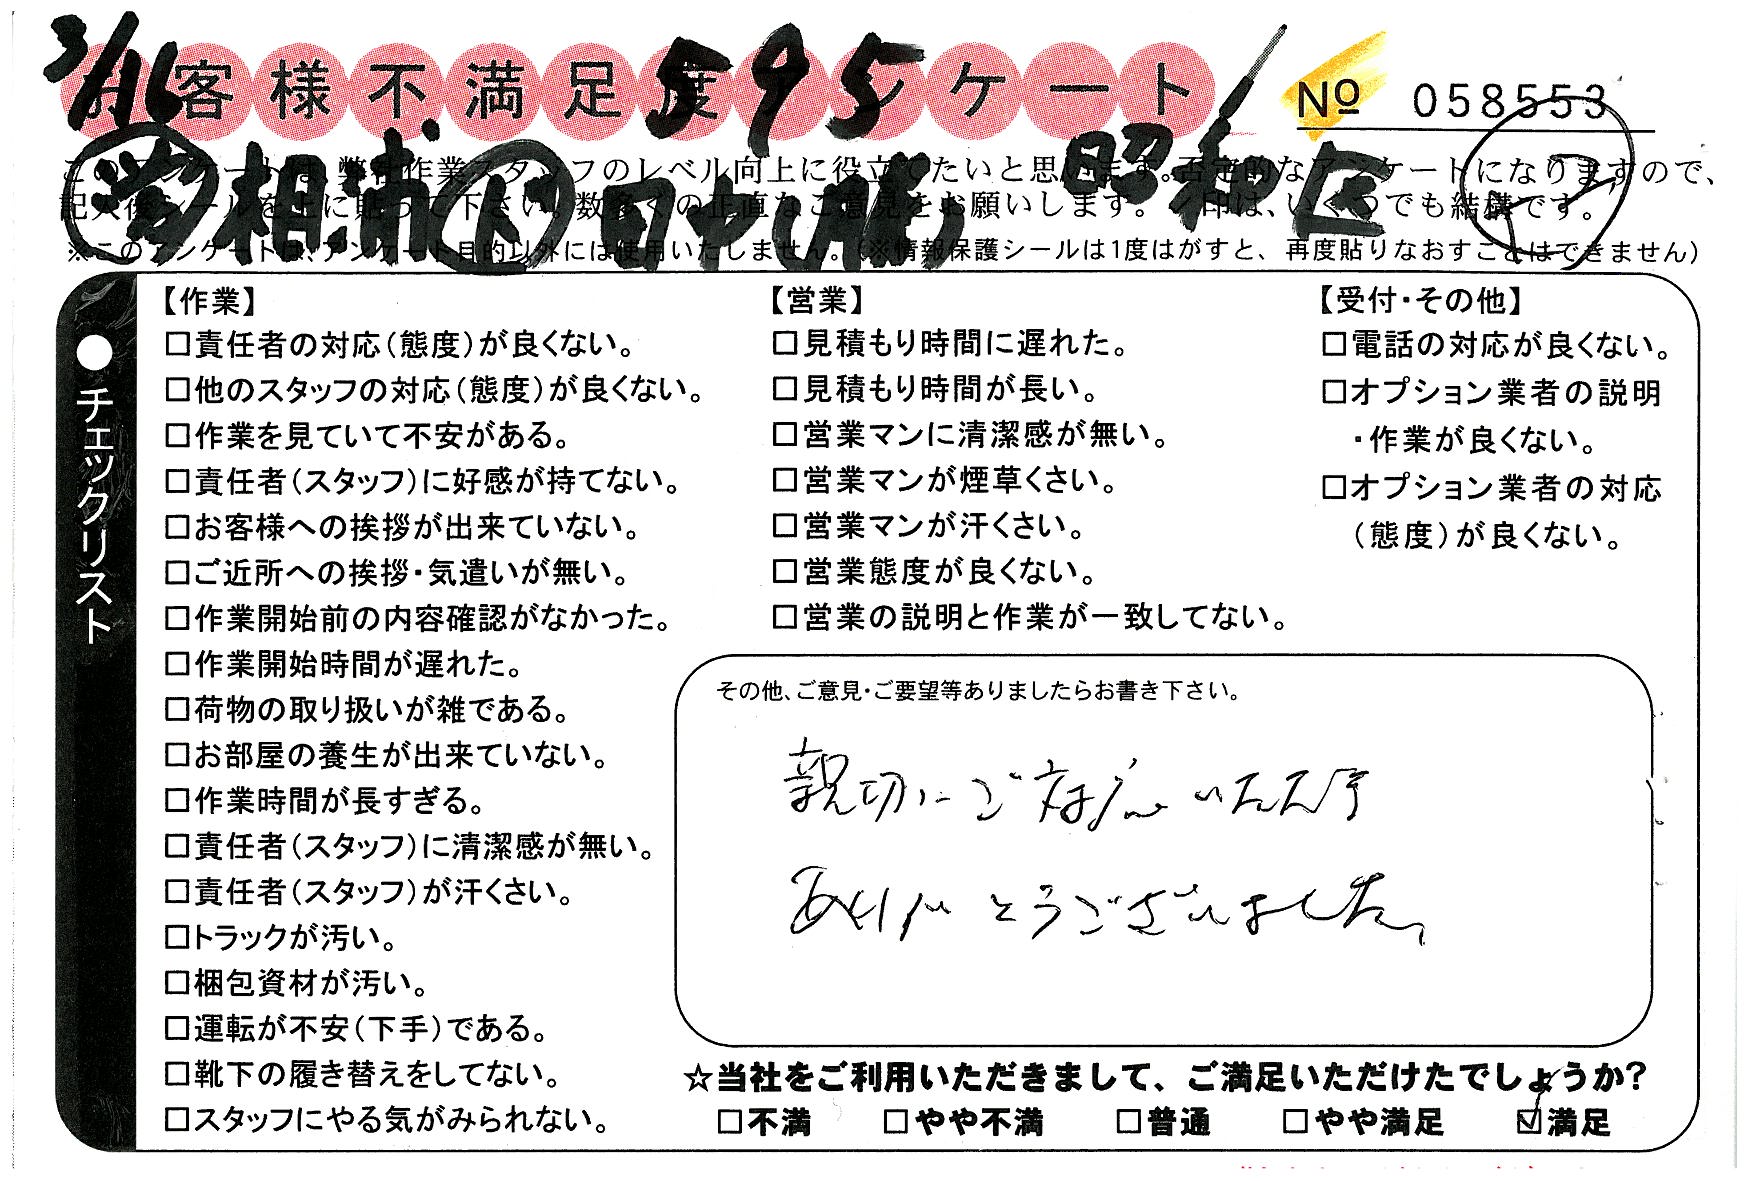 3/16 595
お客様不満足度アンケート
№ 058553
昭和区
相浦 田中
このアンケートは、弊社作業スタッフのレベル向上に役立てたいと思います。否定的なアンケートになりますので、
記入後シールを上に貼って下さい。数多くの正直なご意見をお願いします。✓印は、いくつでも結構です。
※このアンケートは、アンケート目的以外には使用いたしません。(※情報保護シールは1度はがすと、再度貼りなおすことはできません)
●チェックリスト
【作業】
□責任者の対応(態度)が良くない。
□他のスタッフの対応(態度)が良くない。
□作業を見ていて不安がある。
□責任者(スタッフ)に好感が持てない。
□お客様への挨拶が出来ていない。
□ご近所への挨拶・気遣いが無い。
□作業開始前の内容確認がなかった。
□作業開始時間が遅れた。
□荷物の取り扱いが雑である。
□お部屋の養生が出来ていない。
□作業時間が長すぎる。
□責任者(スタッフ)に清潔感が無い。
□責任者(スタッフ)が汗くさい。
□トラックが汚い。
□梱包資材が汚い。
□運転が不安(下手)である。
□靴下の履き替えをしてない。
□スタッフにやる気がみられない。
【営業】
□見積もり時間に遅れた。
□見積もり時間が長い。
□営業マンに清潔感が無い。
□営業マンが煙草くさい。
□営業マンが汗くさい。
□営業態度が良くない。
□営業の説明と作業が一致してない。
【受付・その他】
□電話の対応が良くない。
□オプション業者の説明
・作業が良くない。
□オプション業者の対応
(態度)が良くない。
その他、ご意見・ご要望等ありましたらお書き下さい。
親切にご対応いただき
ありがとうございました。
☆当社をご利用いただきまして、ご満足いただけたでしょうか?
□不満 □やや不満 □普通 □やや満足 ☑満足